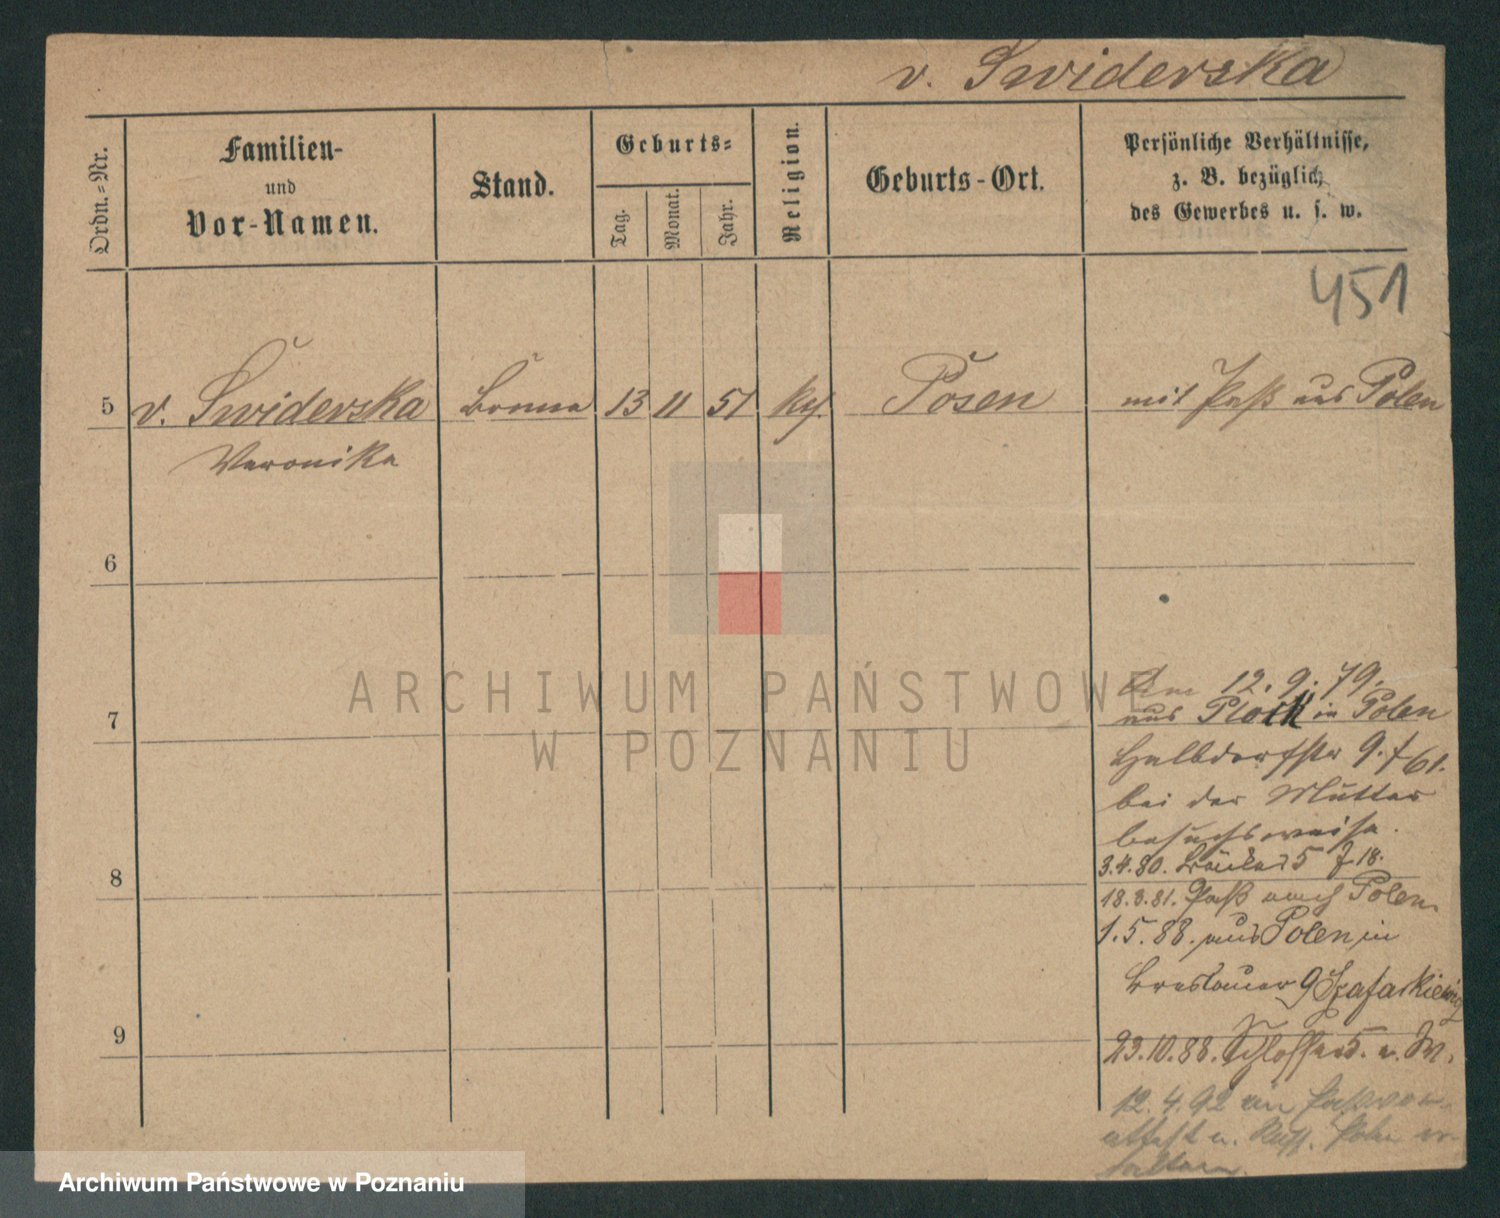 v. Swiderska
Ordn.-Nr.
Familien-
und
Vor-Namen.
Stand.
Geburts-
Tag.
Monat.
Jahr.
Religion.
Geburts-Ort.
Persönliche Verhältnisse,
z. B. bezüglich
des Gewerbes u. s. w.
451
5 v. Swiderska 13 11 51 Posen mit Paß aus Polen
Veronika
6
ARCHIWUM PAŃSTWOWE
W POZNANIU
Am 12. 9. 79.
7 aus Plock in Polen
Halbdorfstr 9.
bei der Mutter
besuchsweise.
3.4.80. 5 18.
8
18.3.81. Paß nach Polen.
1.5.88. aus Polen in
Breslauer 9 Szafarkiewicz
9
23.10.88. Schlosser 5.
12.4.92
Archiwum Państwowe w Poznaniu